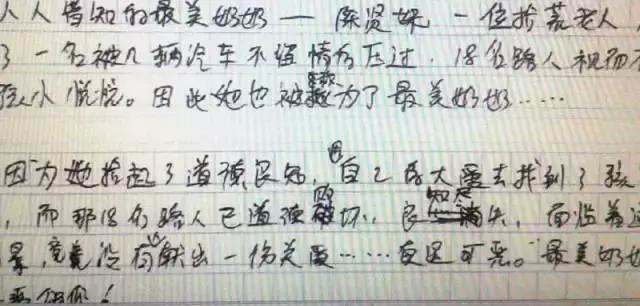 人人皆知的最美奶奶——陈贤妹 一位拾荒老人
了一名被几辆汽车不留情的压过,18名路人视而不
孩小悦悦。因此她也被称为了最美奶奶……
因为她拾起了道德良知,用自己的大爱去找到了孩
,而那18名路人已道德败坏,良知尽失,面临着这
景,竟没有献出一份关爱……真是可恶。最美奶奶